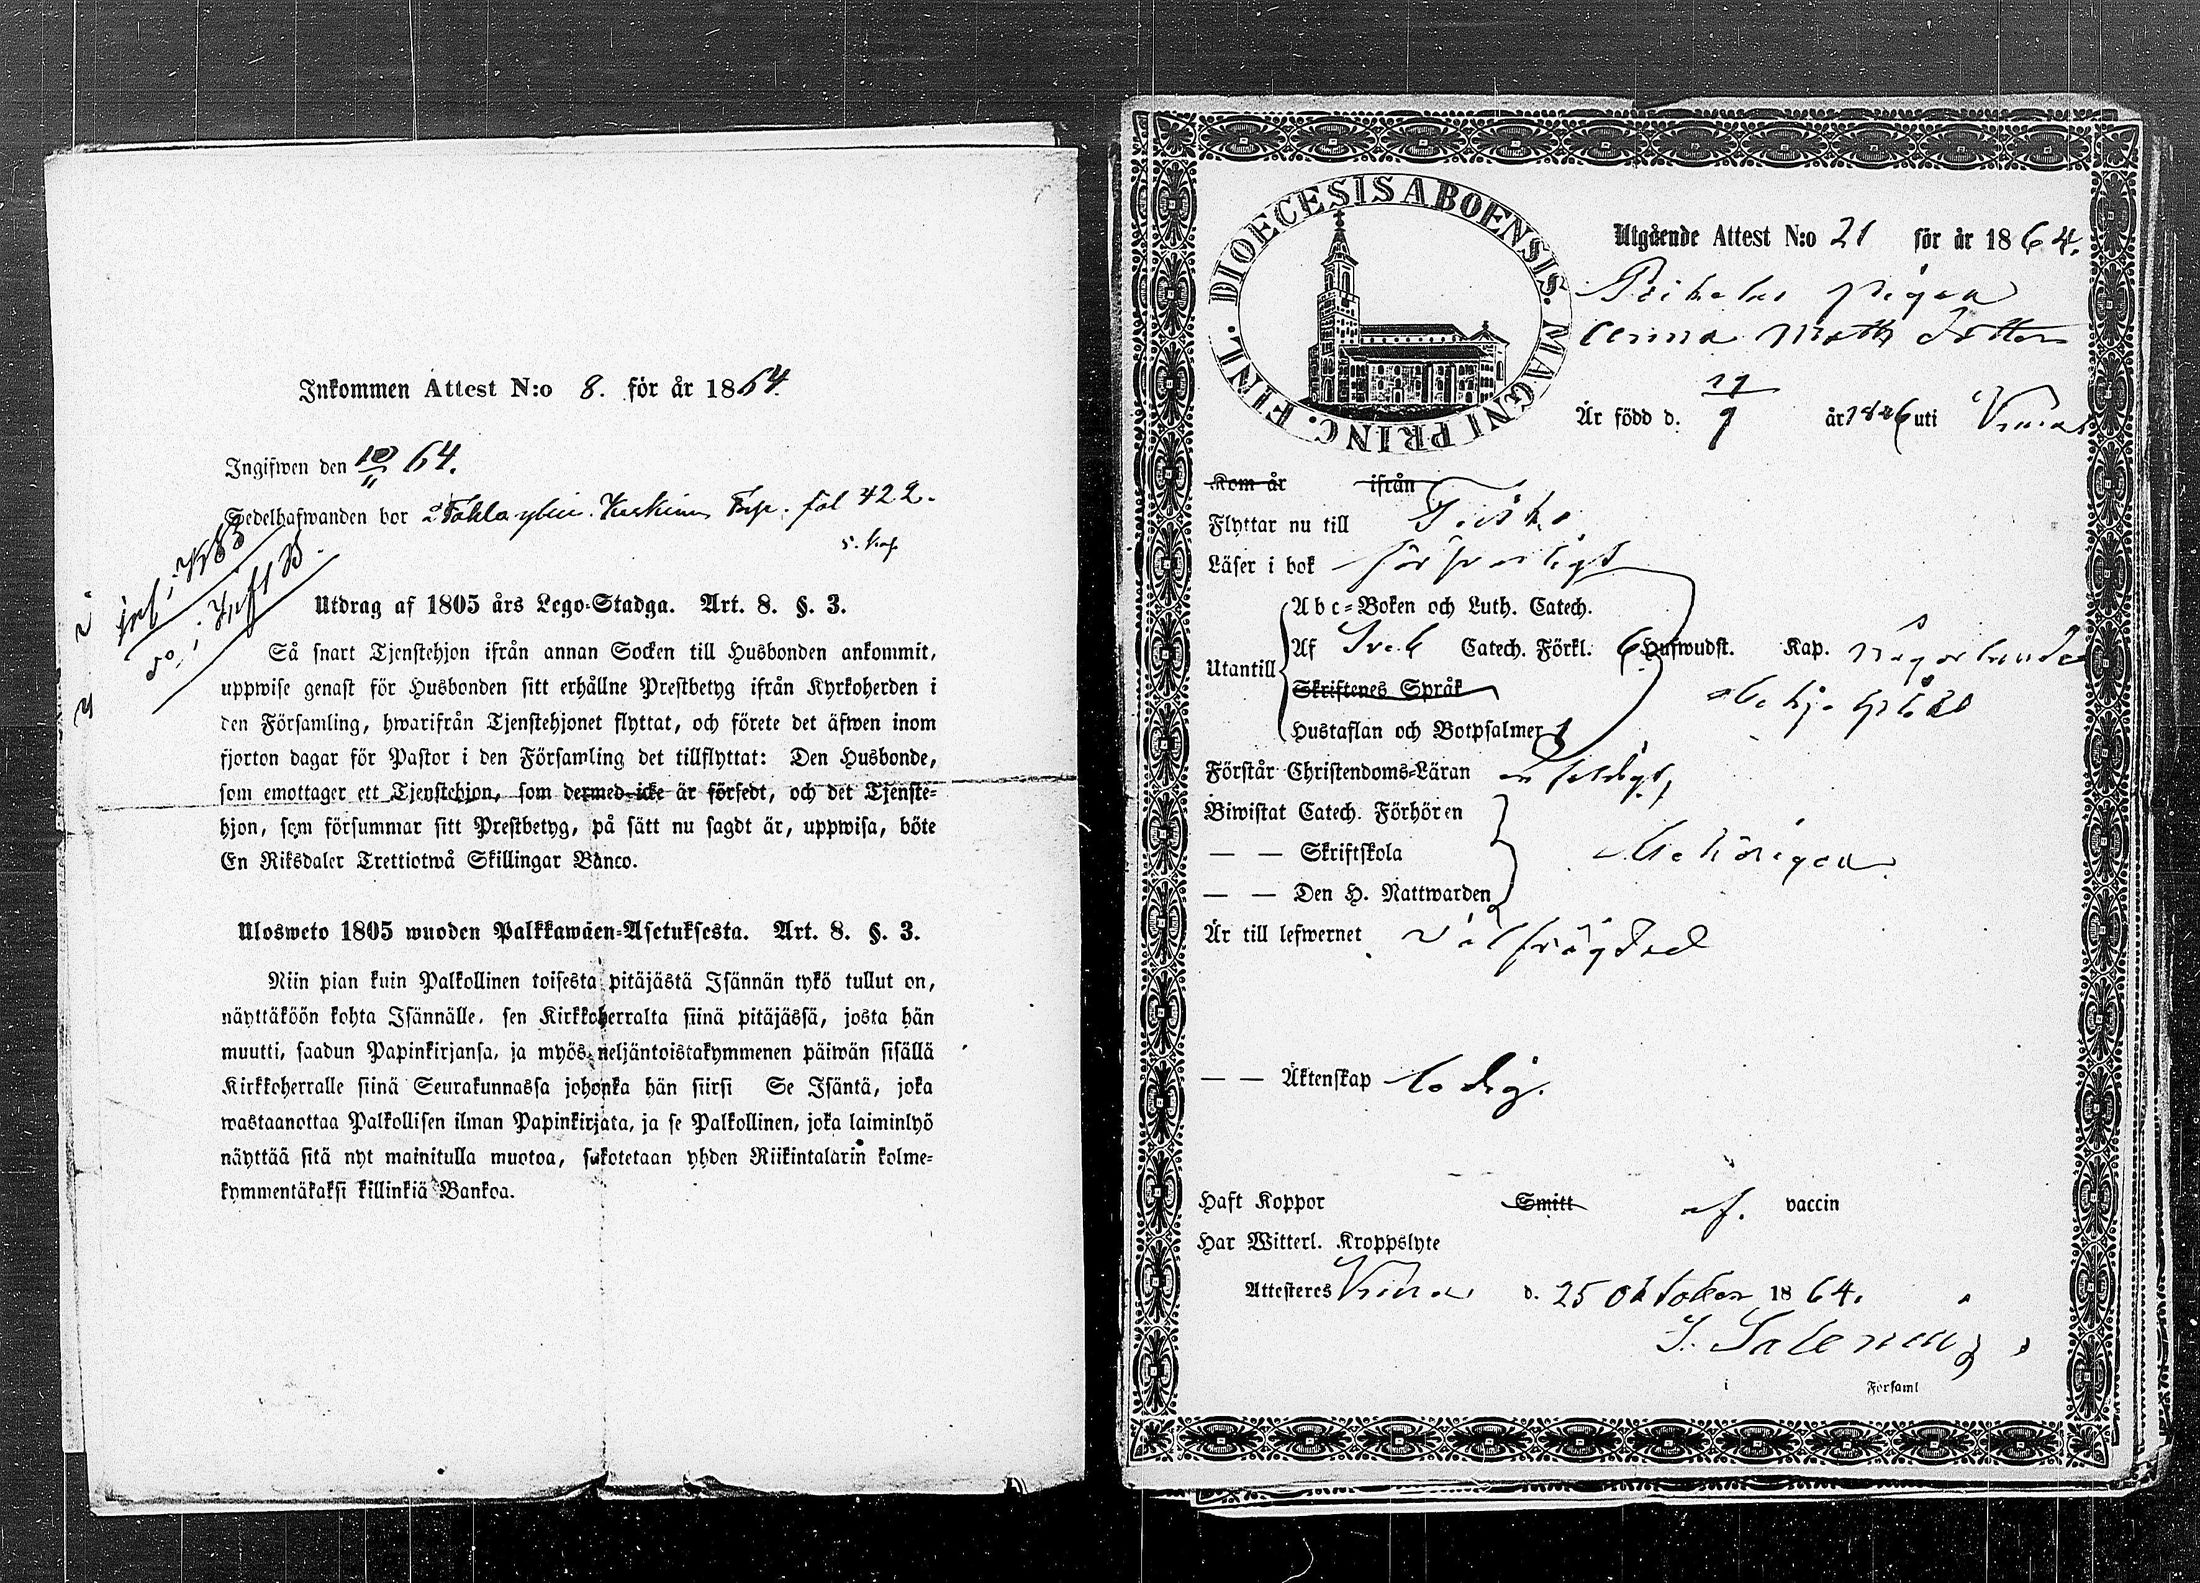 Inkommen Attest N:o 8. för år 1864.
Ingifwen den 10/11 64.
Sedelhafwanden bor fol 422.
Utdrag af 1805 års Lego-Stadga. Art. 8. §. 3.
Så snart Tjenstehjon ifrån annan Socken till Husbonden ankommit,
uppwise genast för Husbonden sitt erhållne Prestbetyg ifrån Kyrkoherden i
den Församling, hwarifrån Tjenstehjonet flyttat, och förete det äfwen inom
fjorton dagar för Pastor i den Församling det tillflyttat: Den Husbonde,
som emottager ett Tjenstehjon, som dermed icke är försedt, och det Tjenste-
hjon, som försummar sitt Prestbetyg, på sätt nu sagdt är, uppwisa, böte
En Riksdaler Trettiotwå Skillingar Banco.
Ulosweto 1805 wuoden Palkkawäen-Asetuksesta. Art. 8. §. 3.
Niin pian kuin Palkollinen toisesta pitäjästä Isännän tykö tullut on,
näyttäköön kohta Isännälle, sen Kirkkoherralta siinä pitäjässä, josta hän
muutti, saadun Papinkirjansa, ja myös neljäntoistakymmenen päiwän sisällä
Kirkkoherralle siinä Seurakunnassa johonka hän siirsi Se Isäntä, joka
wastaanottaa Palkollisen ilman Papinkirjata, ja se Palkollinen, joka laiminlyö
näyttää sitä nyt mainitulla muotoa, sakotetaan yhden Riikintalarin kolme-
kymmentäkaksi killinkiä Bankoa.
DIOECESIS ABOENSIS. MAGNI PRINC. FINL.
Utgående Attest N:o 21 för år 1864.
pigan
Anna Matts dotter
Är född d. år 1846 uti
Kom år ifrån
Flyttar nu till
Läser i bok försvarligt
Abc-Boken och Luth. Catech.
Utantill Af Sveb Catech. Förkl. 6 Hufwudst. Kap. någorlunda
Skriftenes Språk
Hustaflan och Botpsalmer
Förstår Christendoms-Läran
Biwistat Catech. Förhören
— — Skriftskola behörigen
— — Den H. Nattwarden
Är till lefwernet välfrägdad
— — Äktenskap ledig.
Haft Koppor Smitt af. vaccin
Har Witterl. Kroppslyte
Attesteres d. 25 oktober 1864.
i Församl